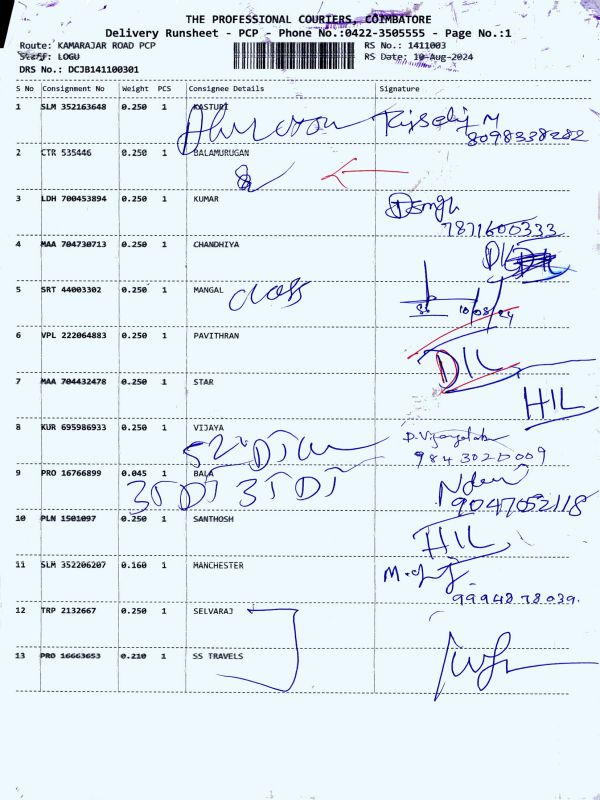 THE PROFESSIONAL COURIERS, COIMBATORE
Delivery Runsheet - PCP - Phone No.:0422-3505555 - Page No.:1
Route: KAMARAJAR ROAD PCP RS No.: 1411003
Staff: LOGU RS Date: 10-Aug-2024
DRS No.: DCJB141100301
S No Consignment No Weight PCS Consignee Details Signature
1 SLM 352163648 0.250 1 KASTURI
8098338282
2 CTR 535446 0.250 1 BALAMURUGAN
3 LDH 700453894 0.250 1 KUMAR
7871600333
4 MAA 704730713 0.250 1 CHANDHIYA
5 SRT 44003302 0.250 1 MANGAL
10/08/24
6 VPL 222064883 0.250 1 PAVITHRAN
DIL
7 MAA 704432478 0.250 1 STAR
HIL
8 KUR 695986933 0.250 1 VIJAYA
9843020009
9 PRO 16766899 0.045 1 BALA
35 DJ 35 DJ
9047052118
10 PLN 1501097 0.250 1 SANTHOSH
HIL
11 SLM 352206207 0.160 1 MANCHESTER
9994878039.
12 TRP 2132667 0.250 1 SELVARAJ
13 PRO 16663653 0.210 1 SS TRAVELS